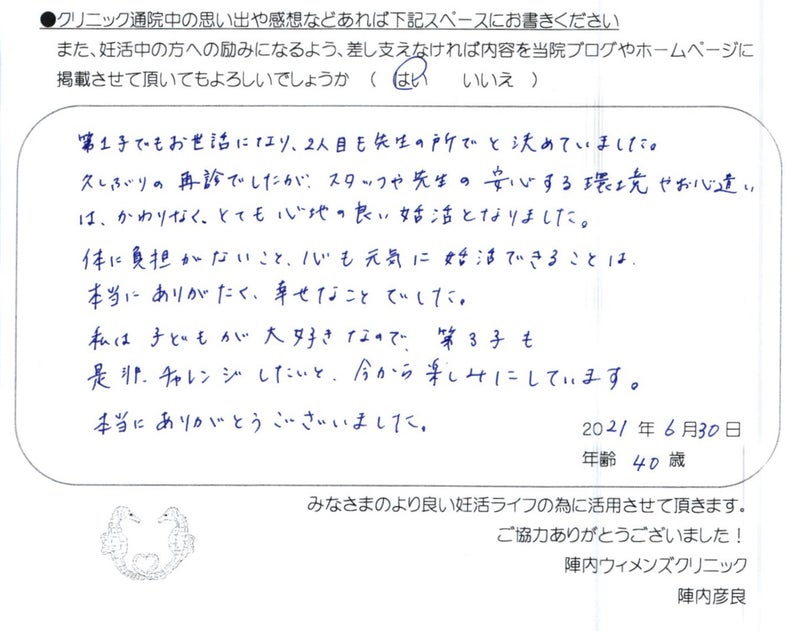 ●クリニック通院中の思い出や感想などあれば下記スペースにお書きください
また、妊活中の方への励みになるよう、差し支えなければ内容を当院ブログやホームページに
掲載させて頂いてもよろしいでしょうか （ はい いいえ ）
第1子でもお世話になり、2人目も先生の所でと決めていました。
久しぶりの再診でしたが、スタッフや先生の安心する環境やお心遣い
は、かわりなく、とても心地の良い妊活となりました。
体に負担がないこと、心も元気に妊活できることは、
本当にありがたく、幸せなことでした。
私は子どもが大好きなので、第3子も
是非、チャレンジしたいと、今から楽しみにしています。
本当にありがとうございました。
2021年6月30日
年齢 40歳
みなさまのより良い妊活ライフの為に活用させて頂きます。
ご協力ありがとうございました！
陣内ウィメンズクリニック
陣内彦良